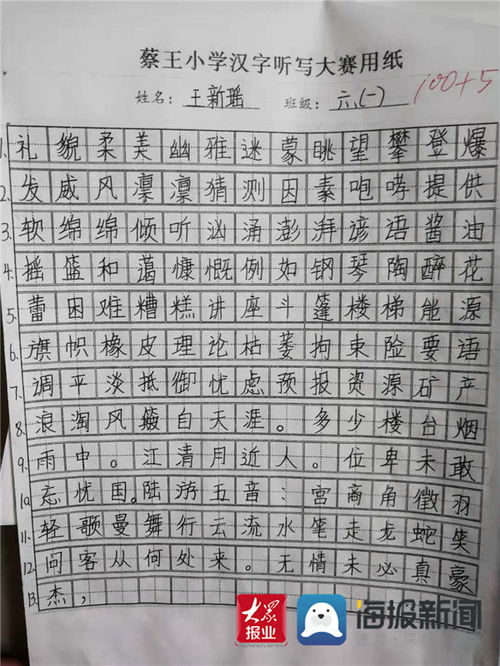 蔡王小学汉字听写大赛用纸
姓名: 王新瑶 班级: 六(一) 100+5
1. 礼貌柔美幽雅迷蒙眺望攀登爆
2. 发威风凛凛猜测因素咆哮提供
3. 软绵绵倾听汹涌澎湃谚语酱油
4. 摇篮和蔼慷慨例如钢琴陶醉花
5. 蕾困难糟糕讲座斗篷楼梯能源
6. 旗帜橡皮理论枯萎拘束险要语
7. 调平淡抵御忧虑预报资源矿产
8. 浪淘风簸自天涯。多少楼台烟
9. 雨中。江清月近人。位卑未敢
10. 忘忧国。陆游五音:宫商角徵羽
11. 轻歌曼舞行云流水笔走龙蛇笑
12. 问客从何处来。无情未必真豪
13. 杰,
大众报业 海报新闻